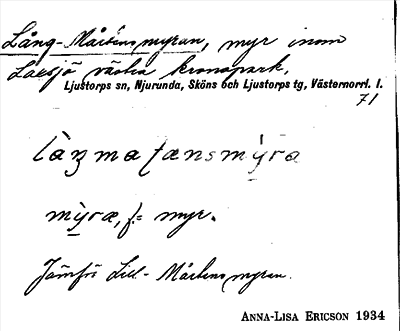 Lång-Mårtensmyran, myr inom
Laxsjö västra kronopark.
Ljustorps sn, Njurunda, Sköns och Ljustorps tg, Västernorrl. l.
71
mỳræ, f. = myr.
Jämför Lill-Mårtensmyran.
ANNA-LISA ERICSON 1934